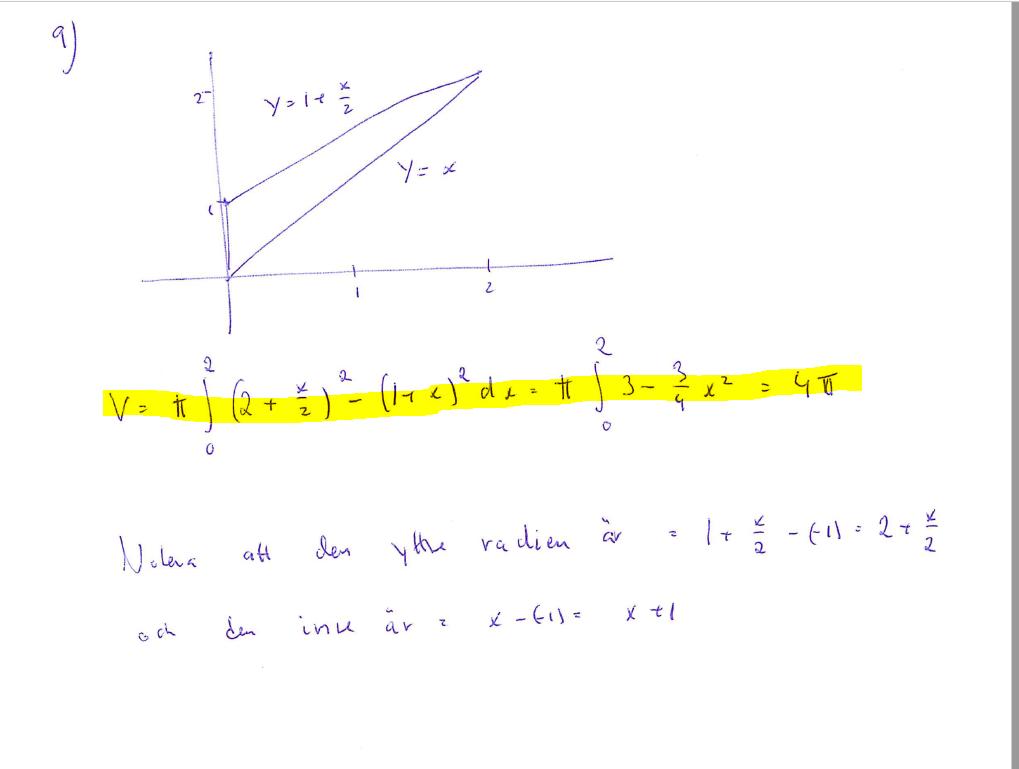 9)
2
y = 1 + x/2
y = x
1
1
2
V = π ∫₀² (2 + x/2)² - (1+x)² dx = π ∫₀² 3 - 3/4 x² = 4π
Notera att den yttre radien är = 1 + x/2 - (-1) = 2 + x/2
och den inre är = x - (-1) = x + 1